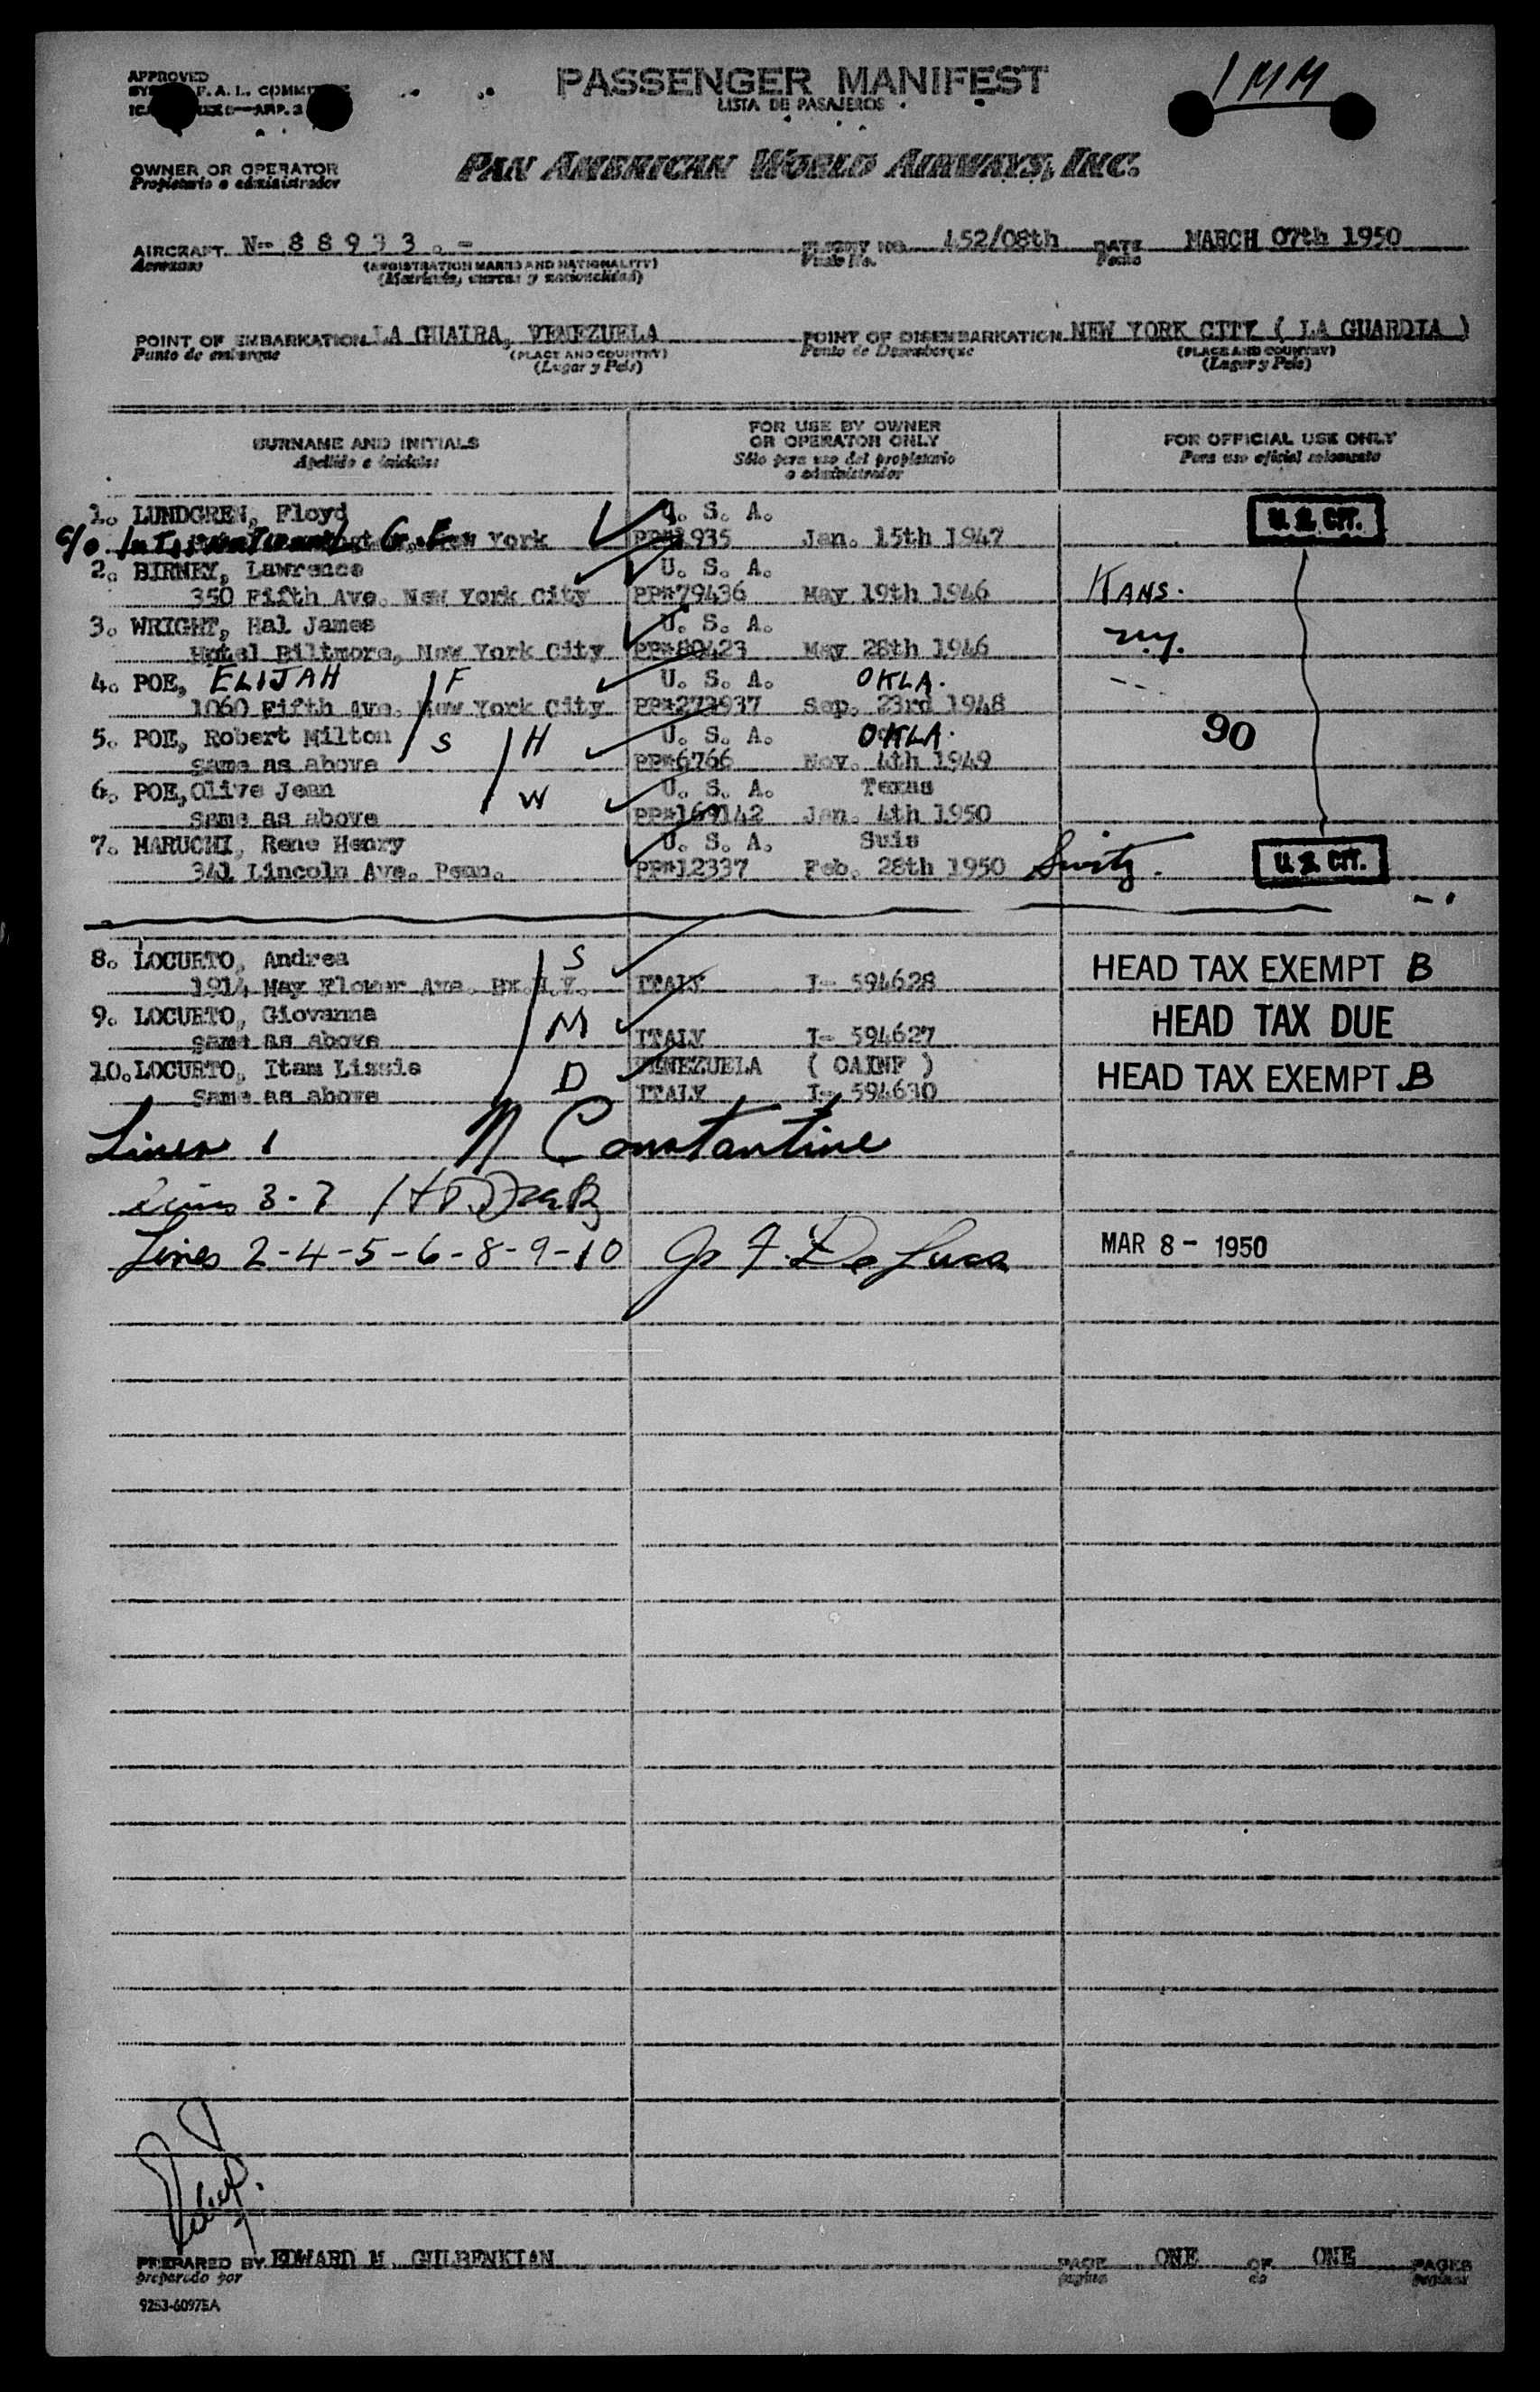 APPROVED
PASSENGER MANIFEST
LISTA DE PASAJEROS
1 MM
OWNER OR OPERATOR
Propietario o administrador
PAN AMERICAN WORLD AIRWAYS, INC.
AIRCRAFT N- 88933.- FLIGHT NO. 452/08th DATE MARCH 07th 1950
Aeronave Vuelo No. Fecha
(REGISTRATION MARKS AND NATIONALITY)
(Matrícula, marcas y nacionalidad)
POINT OF EMBARKATION LA GUAIRA, VENEZUELA POINT OF DISEMBARKATION NEW YORK CITY ( LA GUARDIA )
Punto de embarque (PLACE AND COUNTRY) Punto de Desembarque (PLACE AND COUNTRY)
(Lugar y País) (Lugar y País)
SURNAME AND INITIALS FOR USE BY OWNER OR OPERATOR ONLY FOR OFFICIAL USE ONLY
Apellido e iniciales Sólo para uso del propietario o administrador Para uso oficial solamente
1. LUNDGREN, Floyd U. S. A. U. S. CIT.
c/o International G.E. New York PP#1935 Jan. 15th 1947
2. BIRNEY, Lawrence U. S. A.
350 Fifth Ave. New York City PP#79436 May 19th 1946 KANS.
3. WRIGHT, Hal James U. S. A.
Hotel Biltmore, New York City PP#80423 May 28th 1946 n.y.
4. POE, ELIJAH F U. S. A. OKLA.
1060 Fifth Ave. New York City PP#272937 Sep. 23rd 1948
5. POE, Robert Milton S H U. S. A. OKLA. 90
same as above PP#6766 Nov. 4th 1949
6. POE, Olive Jean W U. S. A. Texas
same as above PP#169142 Jan. 4th 1950
7. MARUCHI, Rene Henry U. S. A. Suis
341 Lincoln Ave. Penn. PP#12337 Feb. 28th 1950 Switz. U. S. CIT.
8. LOCURTO, Andrea S HEAD TAX EXEMPT B
1914 May Flower Ave. Bx.N.Y. ITALY I- 594628
9. LOCURTO, Giovanna M HEAD TAX DUE
same as above ITALY I- 594627
10. LOCURTO, Itam Lissie D VENEZUELA ( OAINF ) HEAD TAX EXEMPT B
Same as above ITALY I- 594630
Lines 1 N Constantine
Lines 3-7
Lines 2-4-5-6-8-9-10 Jo F. De Luca MAR 8 - 1950
PREPARED BY EDWARD M. GULBENKIAN PAGE ONE OF ONE PAGES
preparado por página de páginas
9253-6097EA